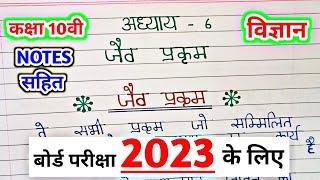 कक्षा 10वी
अध्याय - 6
विज्ञान
NOTES
सहित
जैव प्रक्रम
जैव प्रक्रम
वे सभी प्रक्रम जो सम्मिलित
बोर्ड परीक्षा 2023 के लिए